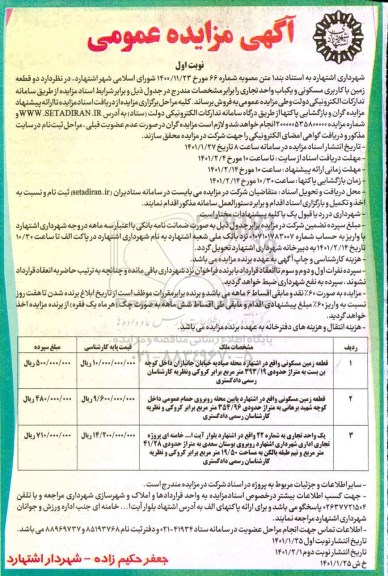 آگهی مزایده عمومی
نوبت اول
شهرداری اشتهارد به استناد بند ۱ متن مصوبه شماره ۶۶ مورخ ۱۴۰۰/۱۱/۲۳ شورای اسلامی شهر اشتهارد، در نظر دارد دو قطعه
زمین با کاربری مسکونی و یکباب واحد تجاری را برابر مشخصات مندرج در جدول ذیل و برابر شرایط اسناد مزایده از طریق سامانه
تدارکات الکترونیکی دولت و طی مزایده عمومی به فروش برساند. کلیه مراحل برگزاری مزایده از دریافت اسناد مزایده تا ارائه پیشنهاد
مزایده گران و بازگشایی پاکتها از طریق درگاه سامانه تدارکات الکترونیکی دولت (ستاد) به آدرس WWW.SETADIRAN.IR و
انجام خواهد شد و لازم است مزایده گران در صورت عدم عضویت قبلی، مراحل ثبت نام در سایت
مذکور و دریافت گواهی امضای الکترونیکی را جهت شرکت در مزایده محقق سازند.
- تاریخ انتشار اسناد مزایده در سامانه ساعت ۸ تاریخ ۱۴۰۱/۱/۲۷
- مهلت دریافت اسناد از سایت : تا ساعت ۱۰ مورخ ۱۴۰۱/۲/۴
- مهلت زمانی ارائه پیشنهاد: ساعت ۱۰ مورخ ۱۴۰۱/۲/۱۴
- زمان بازگشایی پاکتها: ساعت ۱۰/۳۰ مورخ ۱۴۰۱/۲/۱۴
- محل دریافت و تحویل اسناد: متقاضیان شرکت در مزایده می بایست در سامانه ستاد ایران (setadiran.ir) ثبت نام و نسبت به
اخذ و تکمیل و بارگزاری اسناد اقدام و برابر دستورالعمل سامانه مذکور اقدام نمایند.
- شهرداری در رد یا قبول یک یا کلیه پیشنهادات مختار است.
- مبلغ سپرده تضمین شرکت در مزایده برابر جدول ذیل به صورت ضمانت نامه بانکی با اعتبار سه ماهه در وجه شهرداری اشتهارد
یا واریز به حساب شماره نزد بانک ملی شعبه اشتهارد به نام شهرداری اشتهارد در پاکت الف تا ساعت ۱۰/۳۰
تاریخ ۱۴۰۱/۲/۱۴ به دبیرخانه شهرداری اشتهارد تحویل گردد.
- هزینه کارشناسی و چاپ آگهی به عهده برنده مزایده می باشد.
- سپرده نفرات اول و دوم و سوم تا انعقاد قرارداد با برنده فراخوان نزد شهرداری باقی مانده و چنانچه به ترتیب حاضر به انعقاد قرارداد
نشوند، سپرده به نفع شهرداری ضبط خواهد گردید.
- مزایده به صورت ۶۰٪ نقد و مابقی اقساط ۶ ماهه می باشد و برنده برابر مقررات موظف است از تاریخ ابلاغ برنده شدن تا هفت روز
نسبت به واریز ۶۰٪ مبلغ پیشنهادی اقدام و مابقی طی اقساط شش ماهه به صورت چک (هر ماه یک فقره) از برنده مزایده اخذ
خواهد گردید.
- هزینه انتقال و هزینه های دفترخانه به عهده برنده مزایده می باشد.
ردیف مشخصات ملک قیمت پایه کارشناسی مبلغ سپرده
۱ قطعه زمین مسکونی واقع در اشتهارد محله صیادیه خیابان جانبازان داخل کوچه بن بست به متراژ حدودی ۳۹۳/۱۹ متر مربع برابر کروکی و نظریه کارشناسان رسمی دادگستری ۱۰/۰۰۰/۰۰۰/۰۰۰ ریال ۵۰۰/۰۰۰/۰۰۰ ریال
۲ قطعه زمین مسکونی واقع در اشتهارد پایین محله روبروی حمام عمومی داخل کوچه شهید برهانی به متراژ حدودی ۳۵۴/۹۶ متر مربع برابر کروکی و نظریه کارشناسان رسمی دادگستری ۹/۶۰۰/۰۰۰/۰۰۰ ریال ۴۸۰/۰۰۰/۰۰۰ ریال
۳ یک واحد تجاری به شماره ۲۲ واقع در اشتهارد بلوار آیت ا... خامنه ای پروژه تجاری اداری شهرداری اشتهارد روبروی بوستان سعدی به متراژ حدودی ۴۱/۲۸ متر مربع و نیم طبقه بالکن به مساحت ۱۹/۵۰ متر مربع برابر کروکی و نظریه کارشناسان رسمی دادگستری ۱۴/۲۰۰/۰۰۰/۰۰۰ ریال ۷۱۰/۰۰۰/۰۰۰ ریال
- سایر اطلاعات و جزئیات مربوط به پروژه در اسناد شرکت در مزایده مندرج است.
- جهت کسب اطلاعات بیشتر در خصوص اسناد مزایده به واحد قراردادها و املاک و شهرسازی شهرداری مراجعه و یا تلفن
۰۲۶۳۷۷۲۱۵۰۴ پاسخگو می باشد و برای ارائه پاکتهای الف به آدرس اشتهارد بلوار آیت ا... خامنه ای جنب اداره ورزش و جوانان
شهرداری اشتهارد مراجعه نمایند.
- اطلاعات تماس جهت انجام مراحل عضویت در سامانه ستاد ۴۱۹۳۴-۰۲۱ و دفتر ثبت نام ۸۵۱۹۳۷۶۸ و ۸۸۹۶۹۷۳۷ می باشد.
تاریخ انتشار نوبت اول ۱۴۰۱/۱/۲۵
تاریخ انتشار نوبت دوم ۱۴۰۱/۲/۱
خ ش ۱۴۰۱/۱/۲۵
جعفر حکیم زاده - شهردار اشتهارد